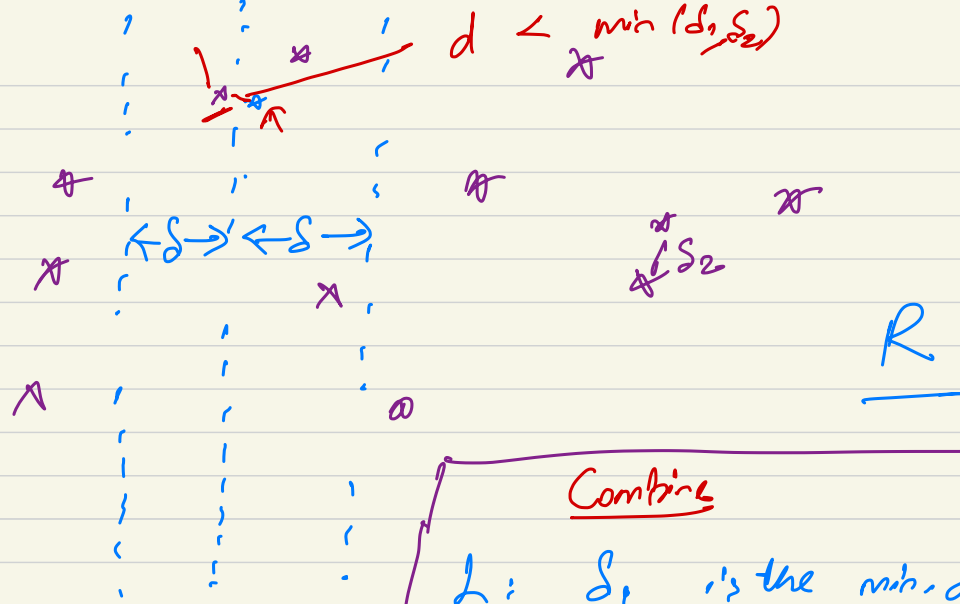 d < min(δ1, δ2)
δ δ
δ2
R
Combine
L: δ1 is the min. d